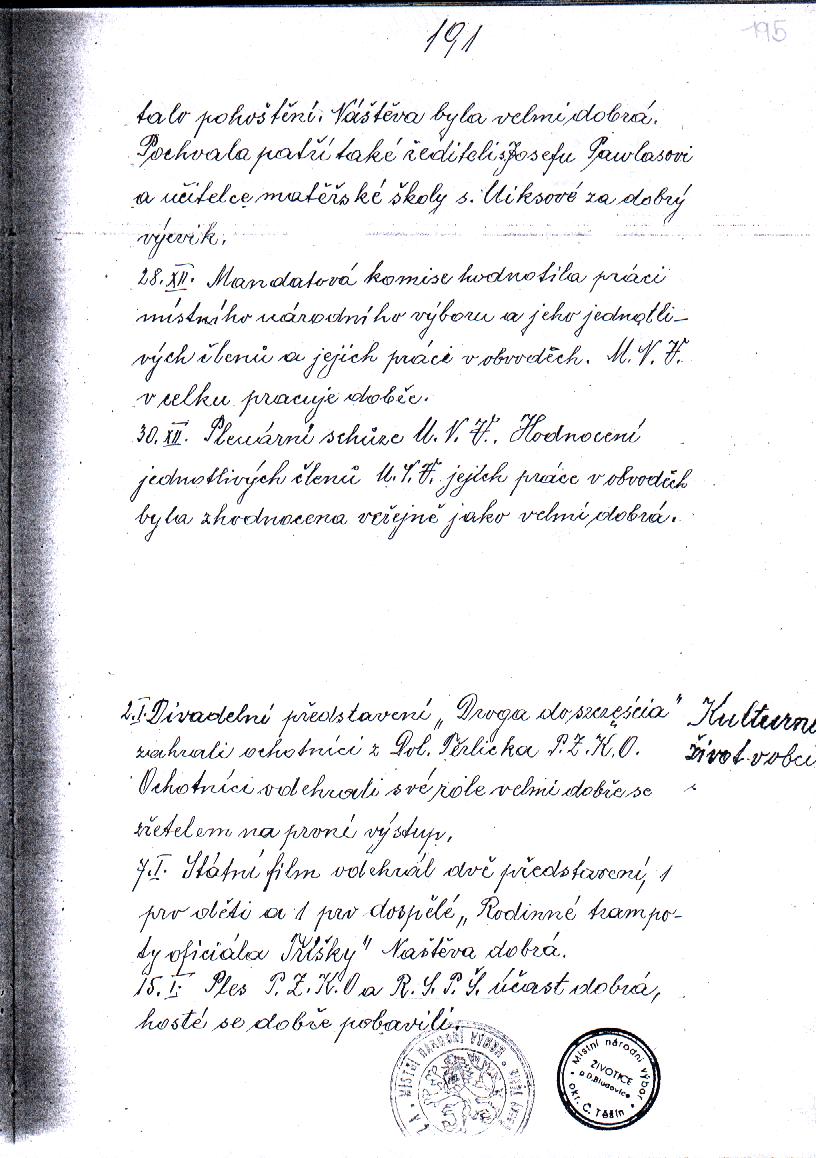 191
195
talo pohoštění. Náštěva byla velmi dobrá.
Pochvala patří také řediteli s. Josefu Pawlasovi
a učitelce mateřské školy s. Uiksové za dobrý
výcvik.
28.XII. Mandatová komise hodnotila práci
místního národního výboru a jeho jednotli-
vých členů a jejich práci v obvodech. M. N. V.
v celku pracuje dobře.
30.XII. Plenární schůze M. N. V. Hodnocení
jednotlivých členů M. N. V. jejich práce v obvodech
byla zhodnocena veřejně jako velmi dobrá.
2.I. Divadelní představení „Droga do szczęścia"
zahráli ochotníci z Dol. Těrlicka P. Z. K. O.
Ochotníci odehráli své role velmi dobře se
zřetelem na první výstup.
Kulturní
život v obci
7.I. Státní film odehrál dvě představení, 1
pro děti a 1 pro dospělé „Rodinné trampo-
ty oficiála Tříšky" Naštěva dobrá.
15.I. Ples P. Z. K. O a R. S. P. Š. účast dobrá,
hosté se dobře pobavili.
MÍSTNÍ NÁRODNÍ VÝBOR
Místní národní výbor
ŽIVOTICE
p. D. Bludovice
okr. Č. Těšín